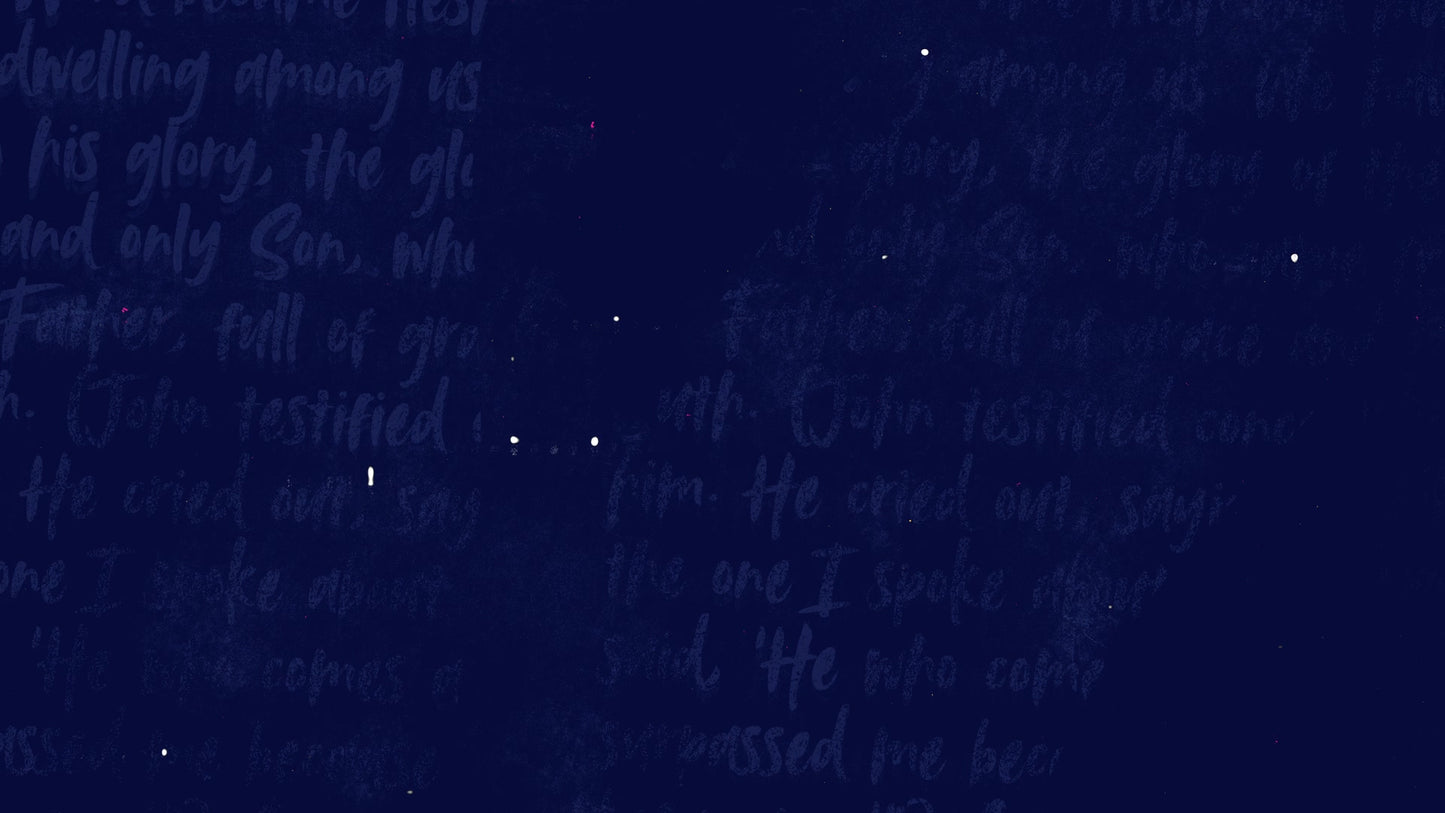 became flesh
dwelling among us
his glory, the glo
and only Son, who
Father, full of gra
h. (John testified
He cried out, say
one I spoke about
'He who comes a
assed me because
among us We
glory, the glory of the
only Son, who
Father full of grace
uth. (John testified conc
him. He cried out, sayi
the one I spoke abou
said, 'He who come
surpassed me bec